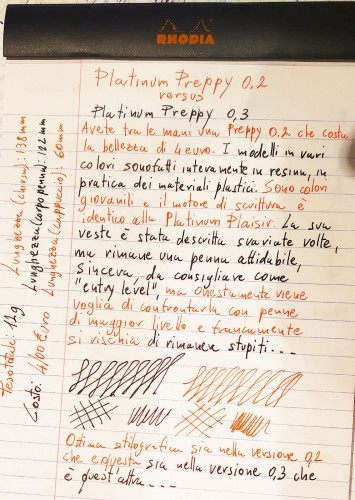 RHODIA
Platinum Preppy 0.2
versus
Platinum Preppy 0,3
Avete tra le mani una Preppy 0.2 che costa
la bellezza di 4 euro. I modelli in vari
colori sono fatti interamente in resina, in
pratica dei materiali plastici. Sono colori
giovanili e il motore di scrittura è
identico alla Platinum Plaisir. La sua
veste è stata descritta svariate volte,
ma rimane una penna affidabile,
sincera, da consigliare come
"entry level", ma onestamente viene
voglia di confrontarla con penne
di maggior livello e francamente
si rischia di rimanere stupiti...
Ottima stilografica sia nella versione 0,2
che è questa sia nella versione 0,3 che
è quest'altra...
Lunghezza (chiusa): 138mm
Lunghezza (corpo penna): 122mm
Lunghezza (cappuccio): 60mm
Peso totale: 12g
Costo: 4,00 euro